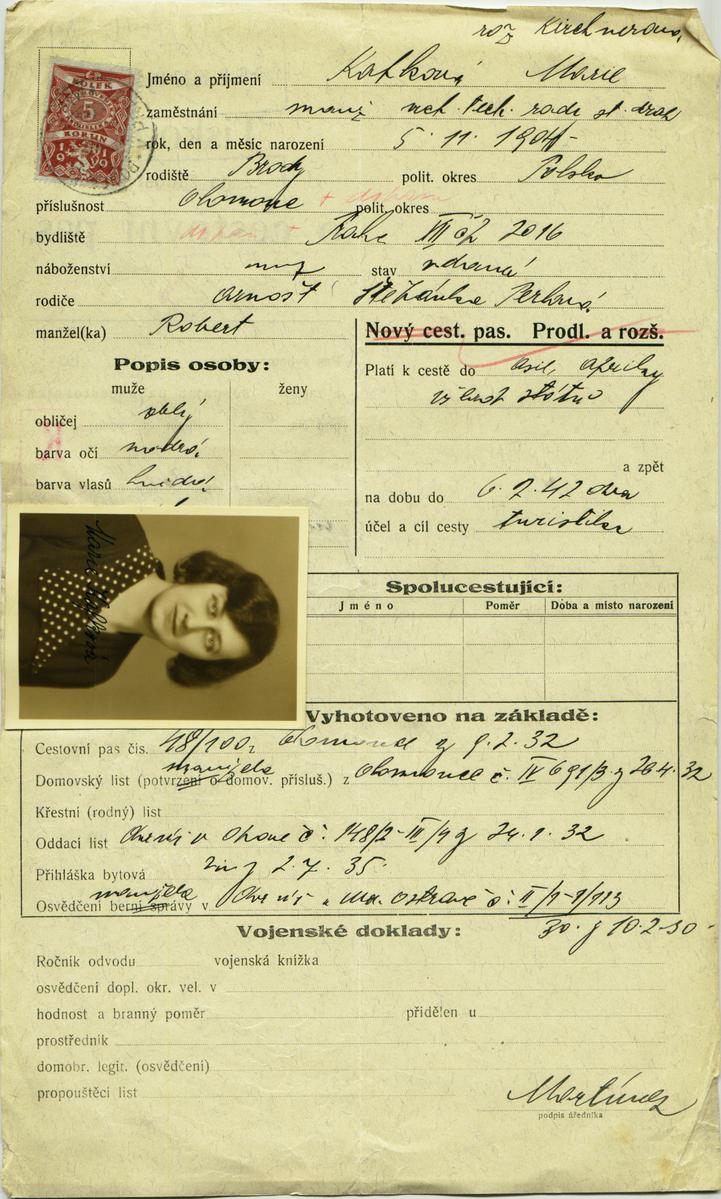 roz Kirchnerova
Č.P.
KOLEK
5
KORUN
Jméno a příjmení Kafková Marie
zaměstnání manž st. drah
rok, den a měsíc narození 5. 11. 1904
rodiště Brody polit. okres Polsko
příslušnost Olomouc polit. okres
bydliště Praha III čp 2016
náboženství stav vdaná
rodiče Arnošt Štěpánka Perlová
manžel(ka) Robert
Nový cest. pas. Prodl. a rozš.
Popis osoby:
muže ženy
obličej oblý
barva očí modrá
barva vlasů hnědá
Platí k cestě do Asie, Afriky
všech států
a zpět
na dobu do 6. 2. 42
účel a cíl cesty turistika
Marie Kafková
Spolucestující:
Jméno Poměr Doba a místo narození
Vyhotoveno na základě:
Cestovní pas čís. 48/100 z Olomouce z 9. 2. 32
manžela
Domovský list (potvrzení o domov. přísluš.) z Olomouce č. IV 691/3 z 26 4. 32
Křestní (rodný) list
Oddací list č. 148/2-III/4 z 24. 1. 32
Přihláška bytová 2. 7. 35.
manžela
Osvědčení berní správy v Mor. Ostravě č. II/1-1/113
30. z 10. 2. 30
Vojenské doklady:
Ročník odvodu vojenská knížka
osvědčení dopl. okr. vel. v
hodnost a branný poměr přidělen u
prostředník
domobr. legit. (osvědčení)
propouštěcí list
podpis úředníka